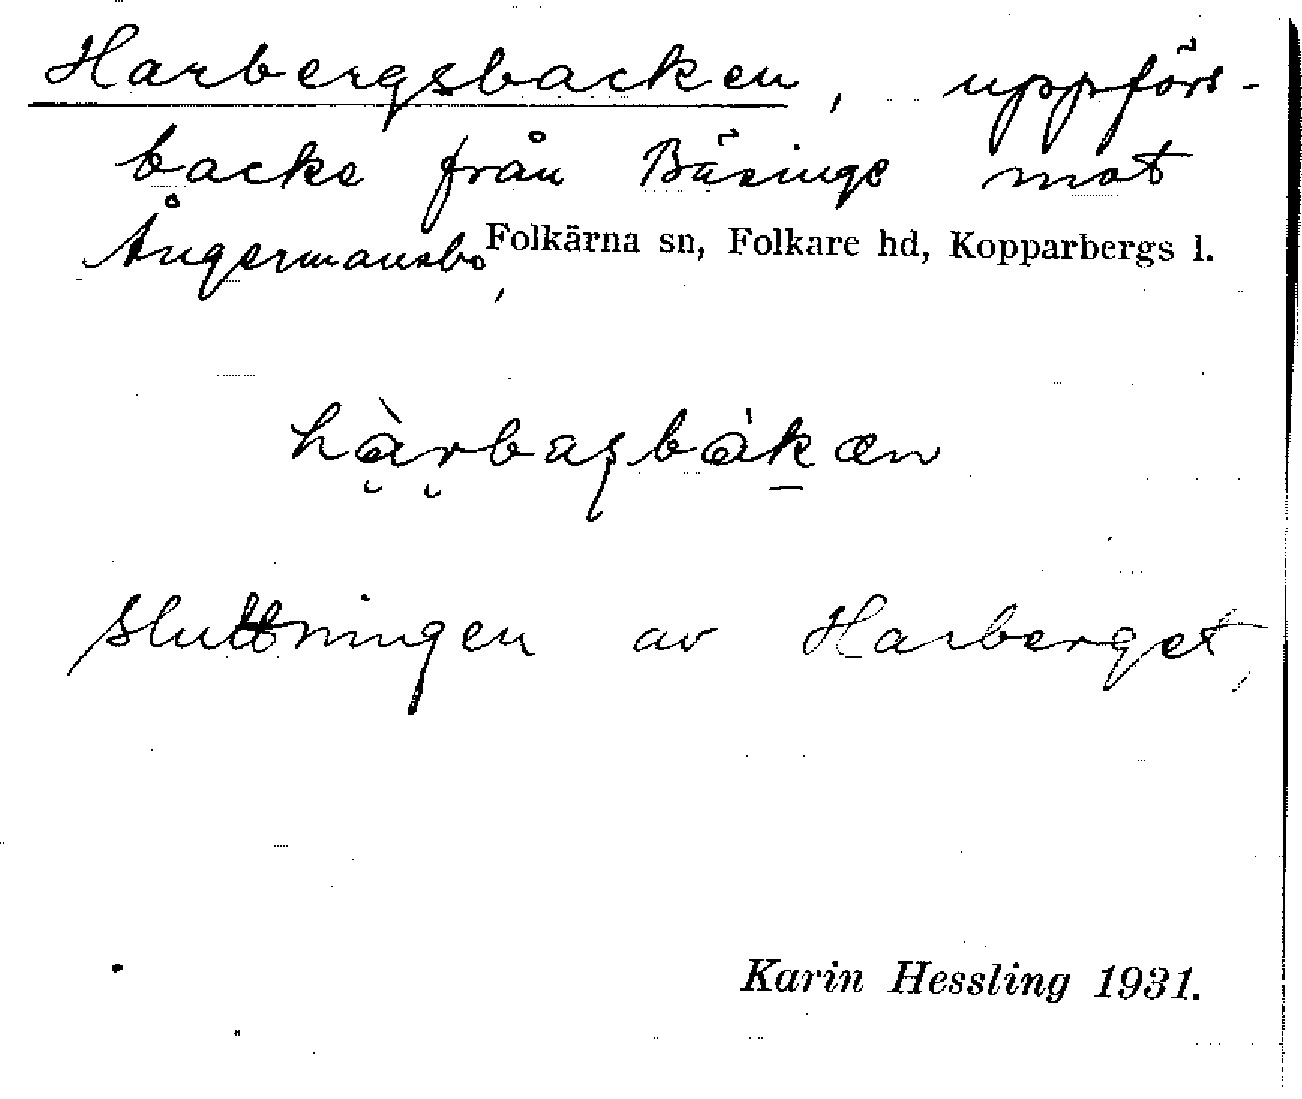 Harbergsbacken, uppförs-
backe från Bäsinge mot
Ångermansbo,
Folkärna sn, Folkare hd, Kopparbergs l.
sluttningen av Harberget,
Karin Hessling 1931.